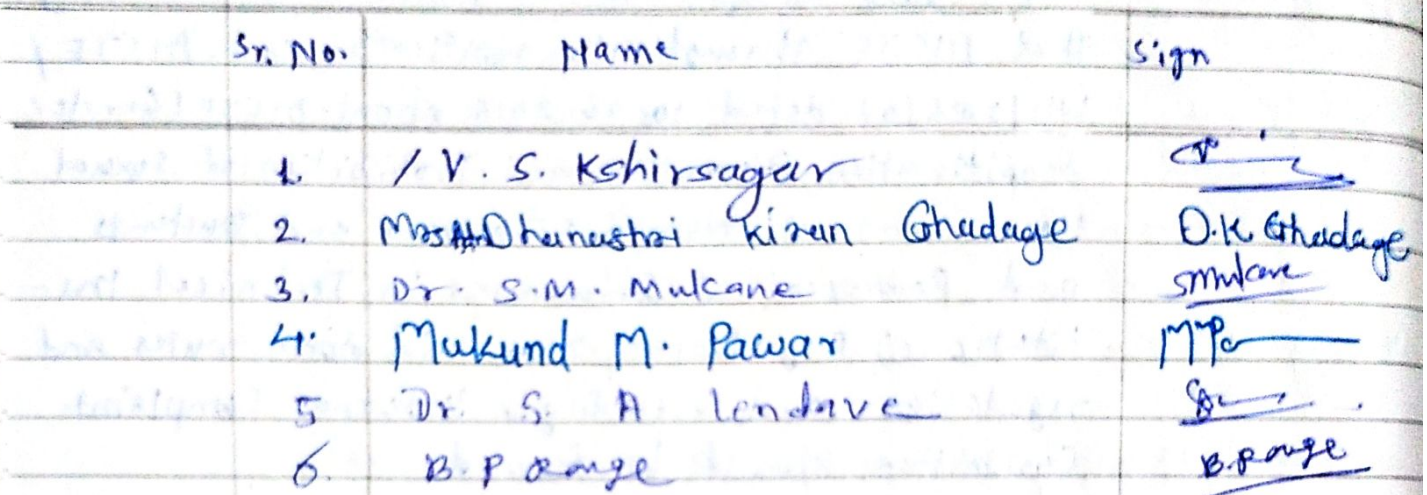 Sr. No. Name Sign
1. / V. S. Kshirsagar
2. Mrs Dhanashri Kiran Ghadage D.K. Ghadage
3. Dr. S.M. Mulcane SMulcane
4. Mukund M. Pawar MPa
5 Dr. S A Lendave
6. B.P Ronge B.P Ronge